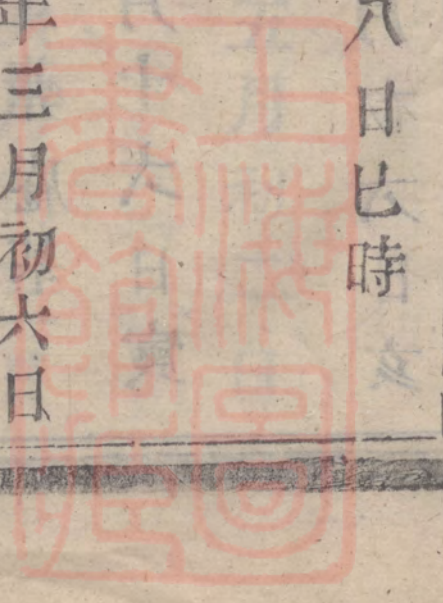 八日巳時
年三月初六日
上海圖
書館藏